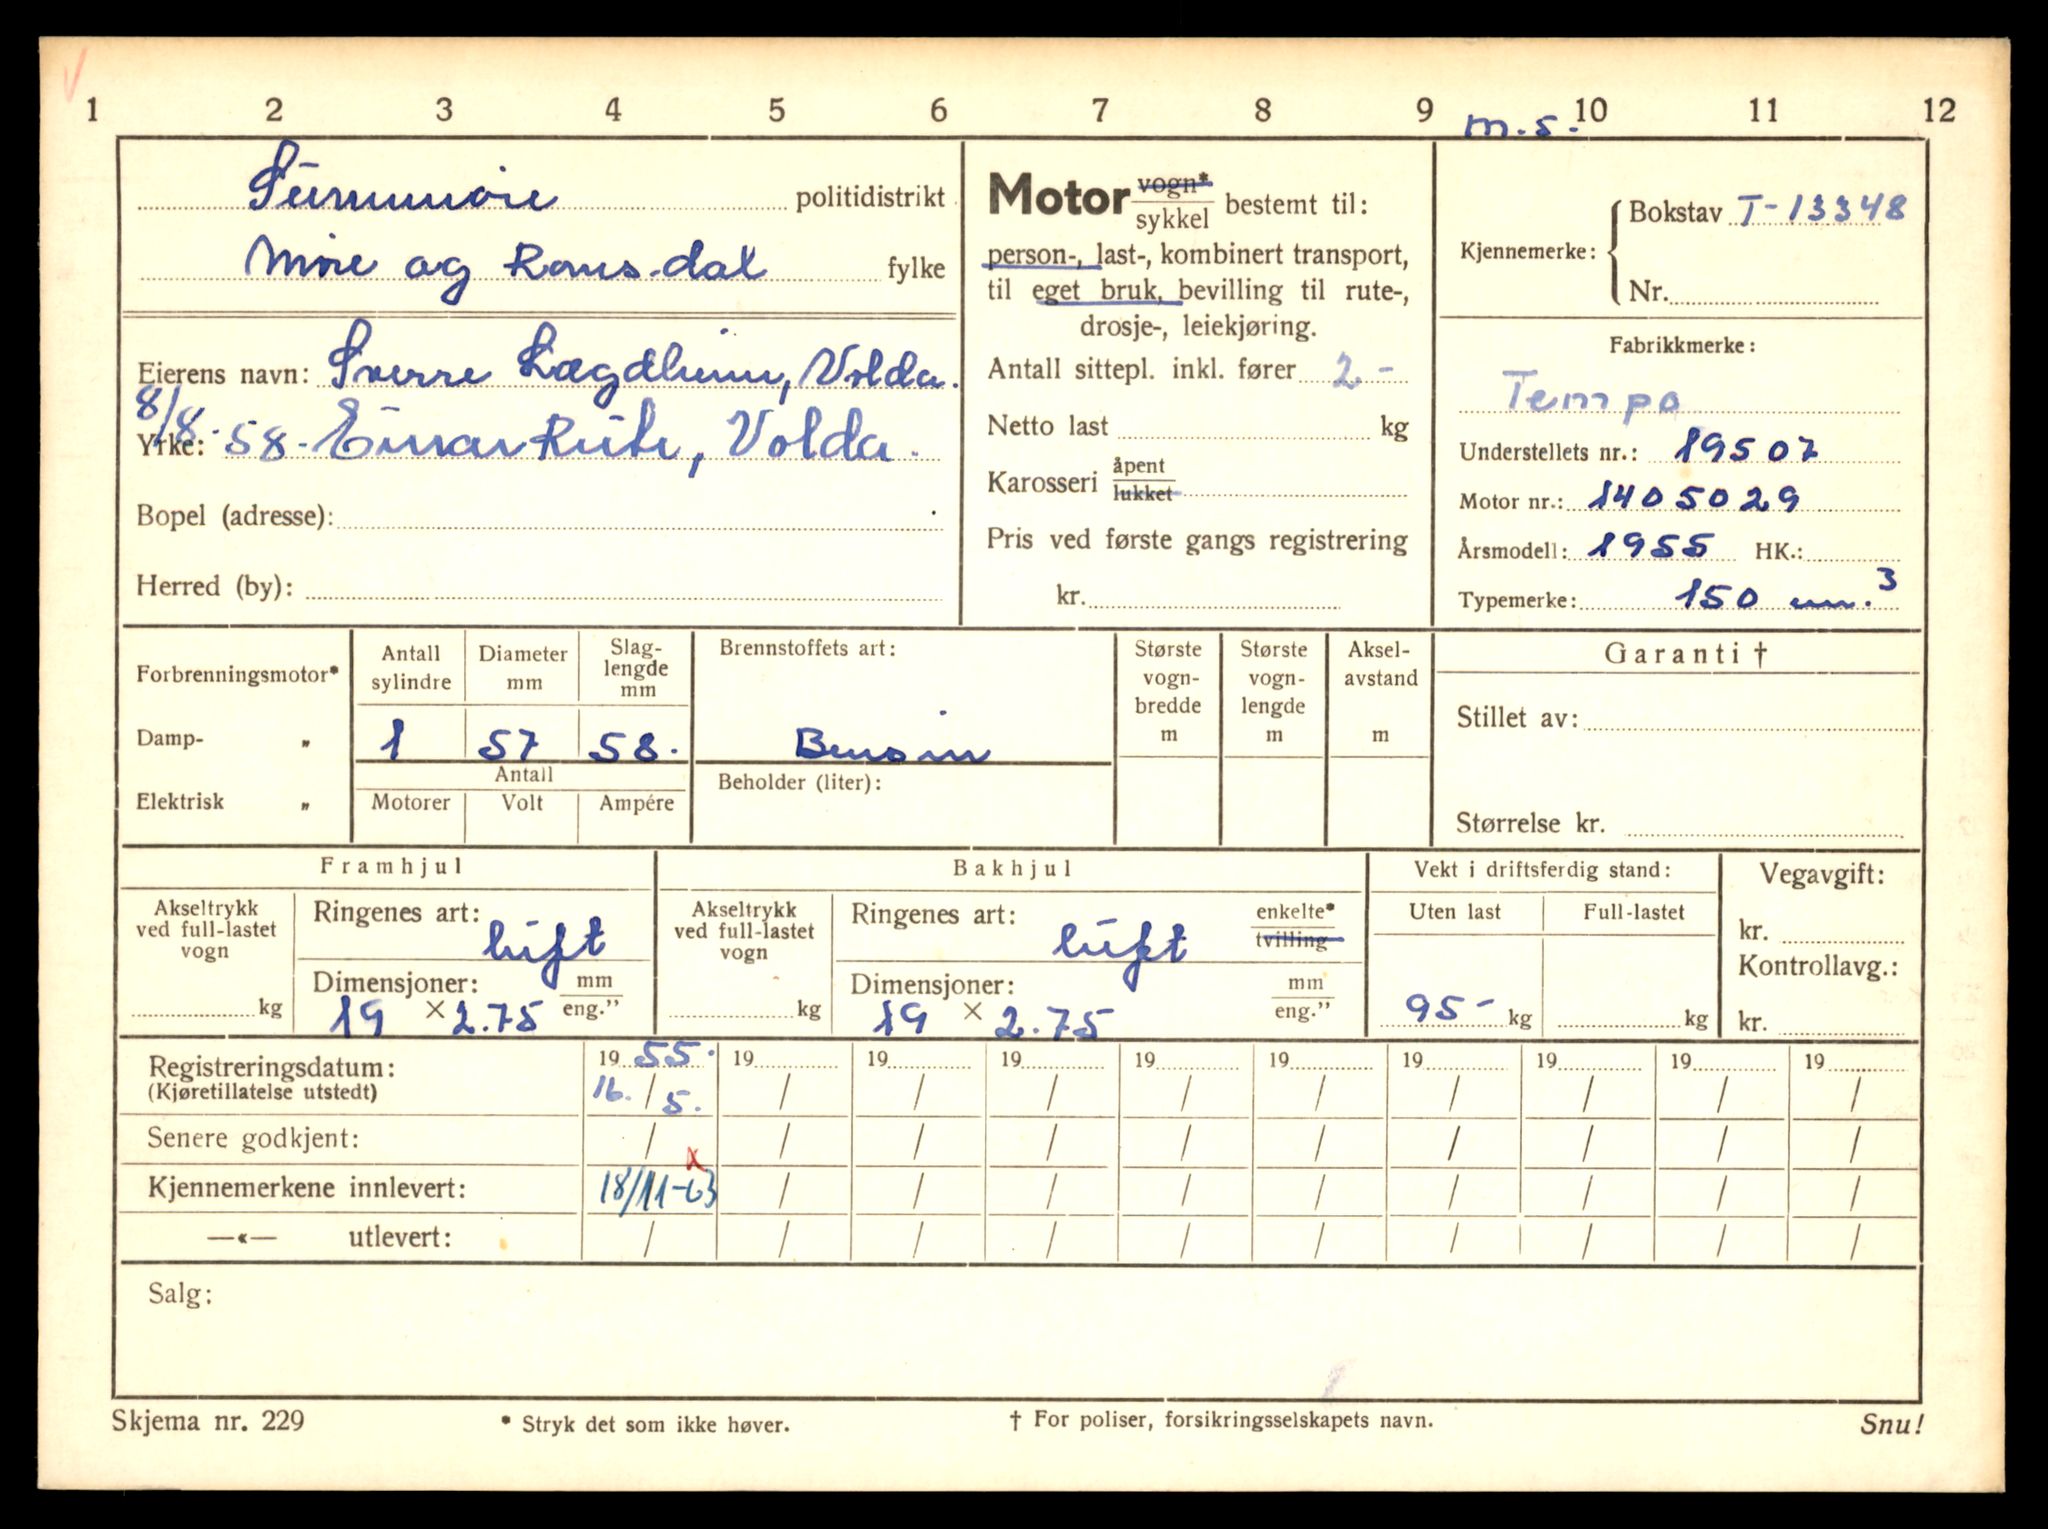 1 2 3 4 5 6 7 8 9 10 11 12
m.s.
Sunnmøre politidistrikt
Møre og Romsdal fylke
Eierens navn: Sverre Lægdheim, Volda.
8/8-58- Einar Rute, Volda.
Yrke:
Bopel (adresse):
Herred (by):
Motor vogn*
sykkel bestemt til:
person-, last-, kombinert transport,
til eget bruk, bevilling til rute-,
drosje-, leiekjøring.
Antall sittepl. inkl. fører 2-
Netto last kg
Karosseri åpent
lukket
Pris ved første gangs registrering
kr.
Kjennemerke: Bokstav T-13348
Nr.
Fabrikkmerke:
Tempo
Understellets nr.: 19507
Motor nr.: 1405029
Årsmodell: 1955 HK.:
Typemerke: 150 cm.3
Forbrenningsmotor*
Damp- „
Elektrisk „
Antall sylindre
Diameter mm
Slaglengde mm
1 57 58.
Antall
Motorer Volt Ampére
Brennstoffets art:
Bensin
Beholder (liter):
Største vognbredde m
Største vognlengde m
Akselavstand m
Garanti †
Stillet av:
Størrelse kr.
Framhjul
Akseltrykk ved full-lastet vogn
kg
Ringenes art:
luft
Dimensjoner: mm
19 × 2.75 eng."
Bakhjul
Akseltrykk ved full-lastet vogn
kg
Ringenes art: enkelte*
luft tvilling
Dimensjoner: mm
19 × 2.75 eng."
Vekt i driftsferdig stand:
Uten last Full-lastet
95- kg kg
Vegavgift:
kr.
Kontrollavg.:
kr.
Registreringsdatum: 19 55. 19 19 19 19 19 19 19 19 19
(Kjøretillatelse utstedt) 16. / 5. / / / / / / / / /
Senere godkjent: / / / / / / / / / /
Kjennemerkene innlevert: 18/11-63 x / / / / / / / / /
—«— utlevert: / / / / / / / / / /
Salg:
Skjema nr. 229 * Stryk det som ikke høver. † For poliser, forsikringsselskapets navn. Snu!